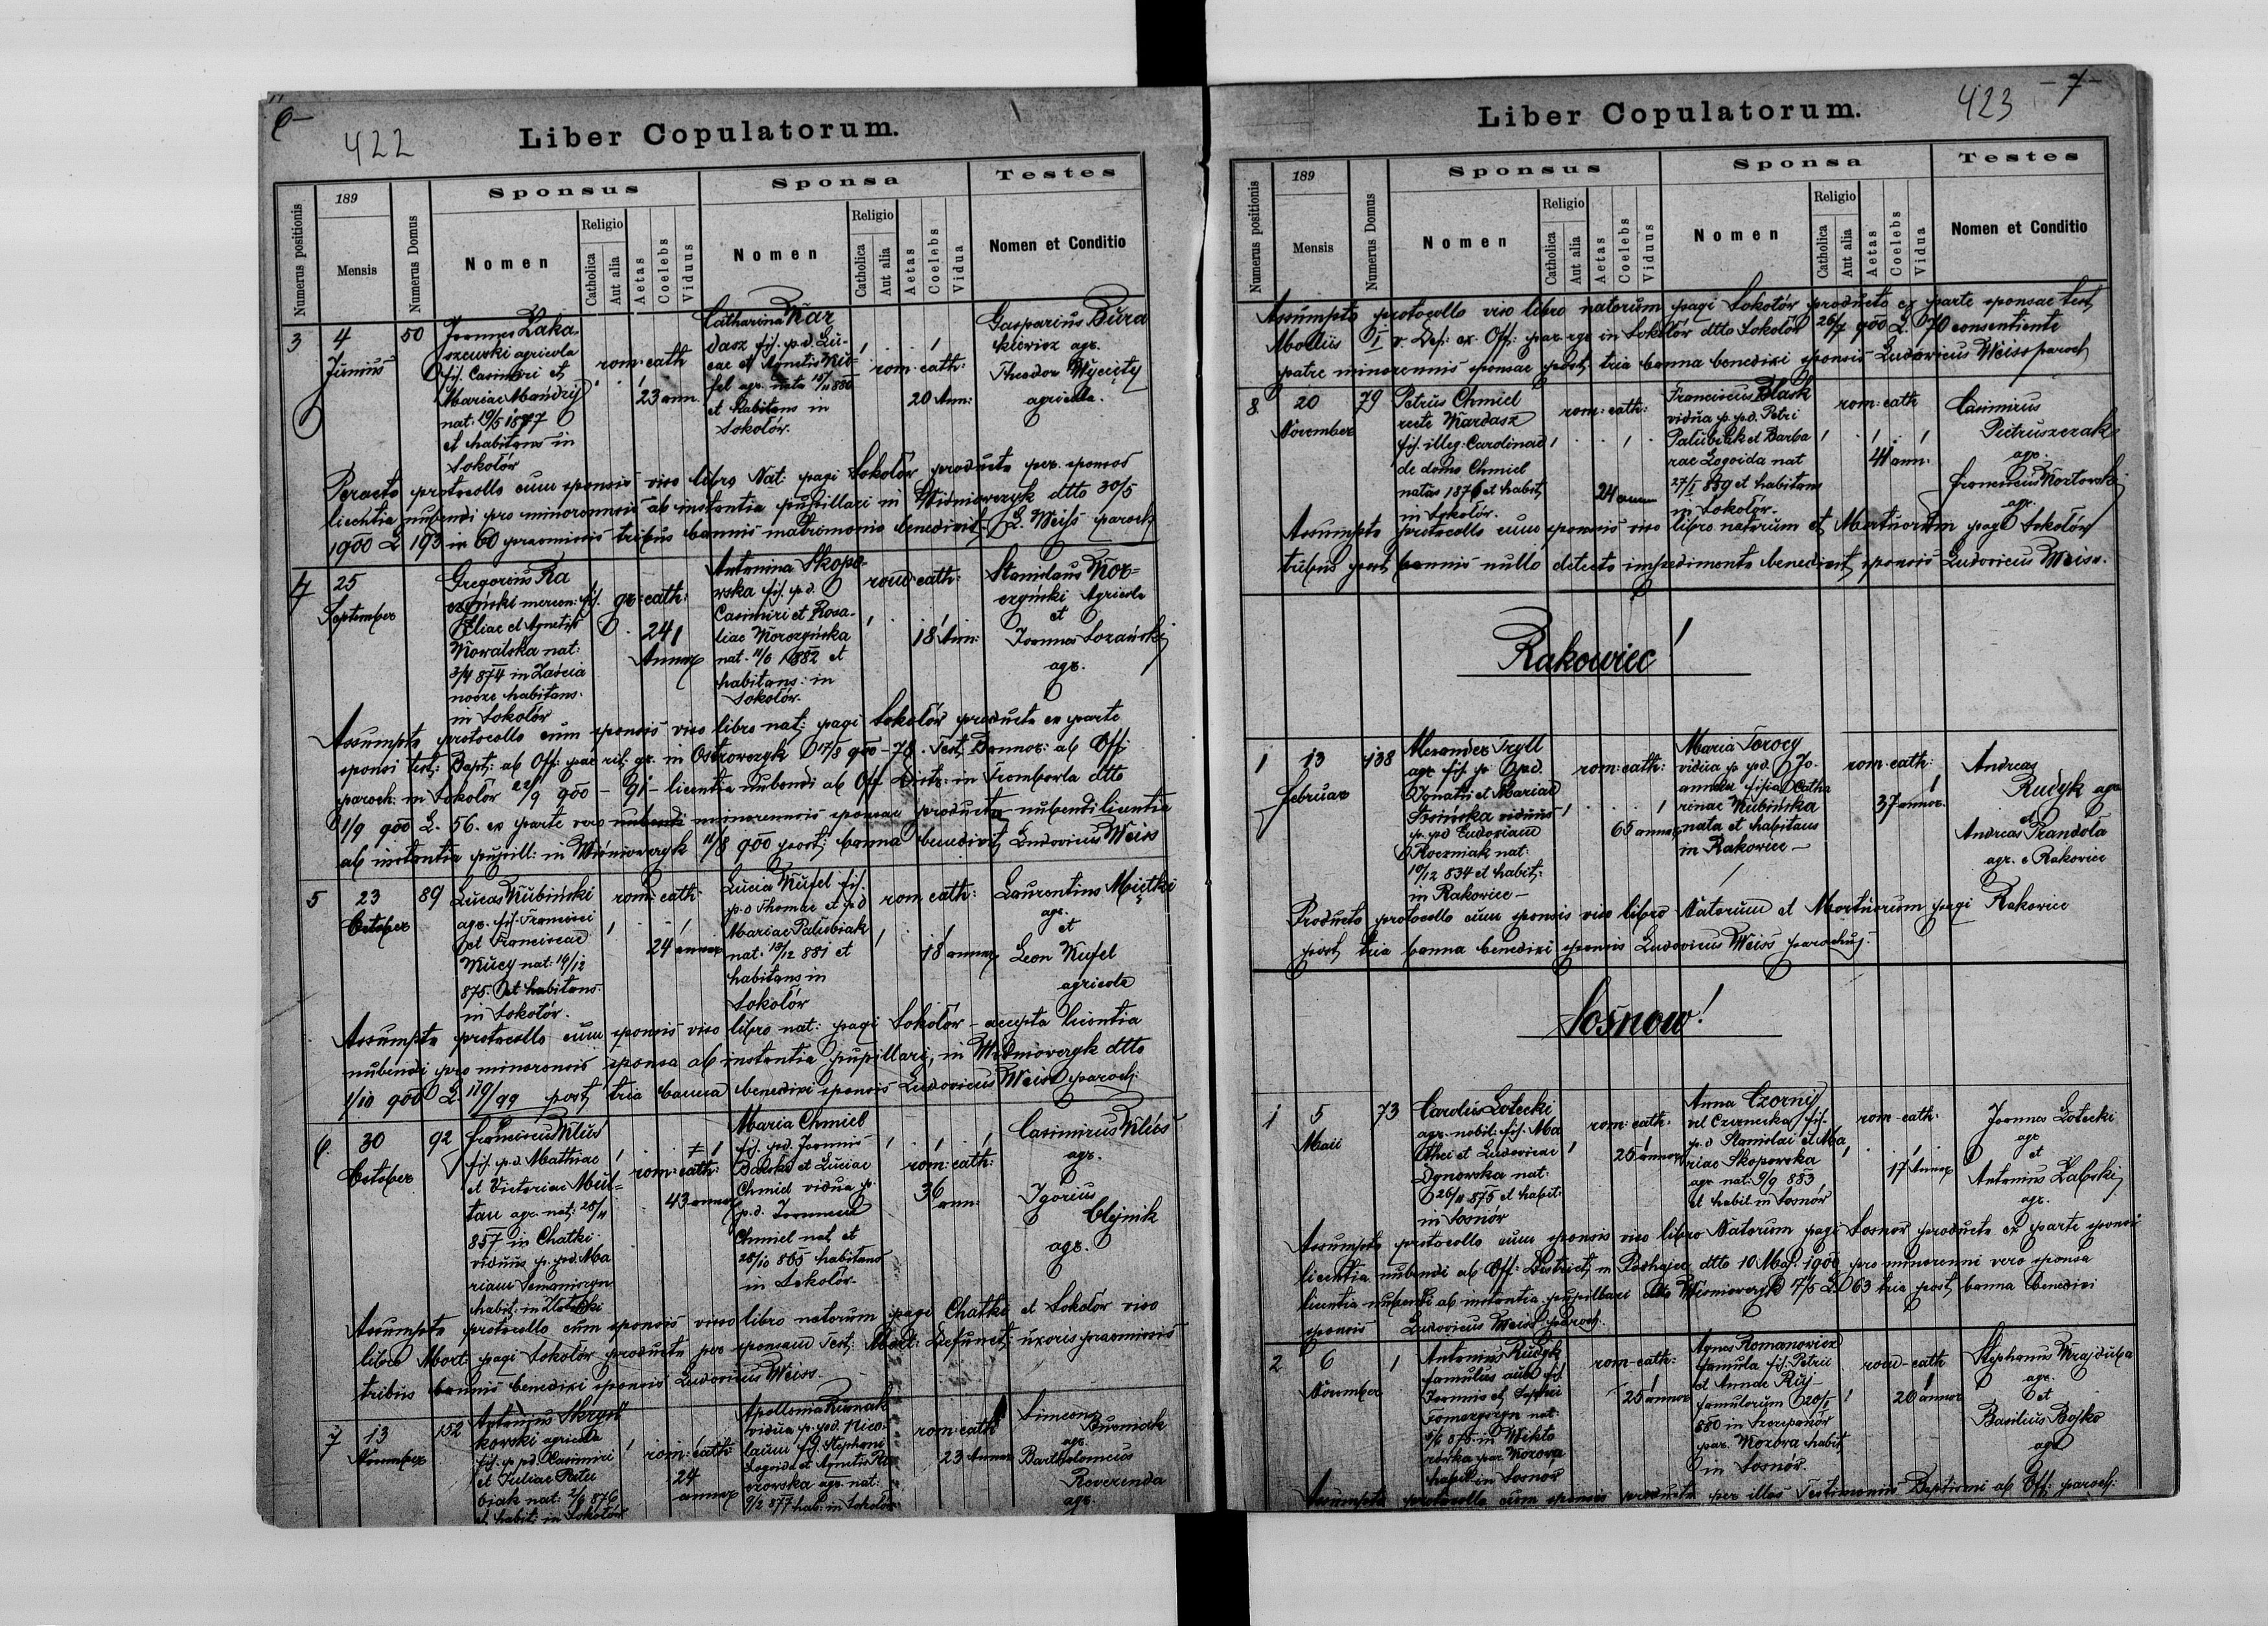 6
422
Liber Copulatorum.
Numerus positionis
189
Mensis
Numerus Domus
Sponsus
Nomen
Religio
Catholica
Aut alia
Aetas
Coelebs
Viduus
Sponsa
Nomen
Religio
Catholica
Aut alia
Aetas
Coelebs
Vidua
Testes
Nomen et Conditio
3
4
Junius
50
Joannes
szewski agricola
fil. Casimiri et
Mariae Mandzij
nat: 19/5 1877
et habitans in
Sokołów
rom: cath
23 ann.
Catharina Kar
dasz fil. p.d. Lu-
cae et Agnetis
agr. nata
et habitans in
Sokołów.
rom: cath:
20 Ann:
Gasparius Bura
kiewicz agr.
Theodor Wycięty
agricola.
Peracto protocollo cum sponsis viso libro Nat: pagi Sokołów producta per sponsos
licentia nubendi pro minorennis ab instantia pupillari in Wiśniowczyk dtto 30/5
1900 L 193 in 60 praemissis tribus bannis matrimonio benedixit L. Weiss paroch
4
25
September
Gregorius Ra
mercen: fil.
Eliae et Agnetis
Kowalska nat:
3/4 874 in
habitans
in Sokołów
gr: cath:
24
Annor
Antonina Skopo-
wska fil. p.d.
Casimiri et Rosa-
liae Korczyńska
nat. 11/6 1882 et
habitans: in
Sokołów.
rom: cath:
18 Ann:
Stanislaus Kor-
czyński Agricola
et
Joannes Łozański
agr.
Assumpto protocollo cum sponsis viso libro nat: pagi Sokołów producta ex parte
sponsi test: Bapt: ab Off: par rit. gr. in 17/8 900 - 78. Test. Bannor: ab Off:
paroch: in Sokołów 22/9 900 - 91 - licentia nubendi ab Off Distr: in Tromborla dtto
1/9 900 L. 56. ex parte vero nubendi minorennis sponsae producta nubendi licentia
ab instantia pupill: in Wiśniowczyk 11/8 900 post: banna benedixit Ludovicus Weiss
5
23
October
89
Lucas Kubiński
agr. fil. Francisci
et Franciscae
Kucy nat: 14/12
875. et habitans
in Sokołów.
rom: cath:
24 annor
Lucia Kufel fil.
p.d Thomae et p.d
Mariae Palubiak
nat. 13/12 881 et
habitans in
Sokołów
rom cath:
18 annor
Laurentius Miętki
agr.
et
Leon Kufel
agricola
Assumpto protocollo cum sponsis viso libro nat: pagi Sokołów - accepta licentia
nubendi pro minorennis sponsa ab instantia pupillari, in Wiśniowczyk dtto
1/10 900 L 119/99 post tria banna benedixi sponsis Ludovicus Weiss paroch:
6.
30
October
92
Franciscus Kilus
fil. p.d. Matthiae
et Victoriae Mul-
tan agr. nat: 28/11
857 in Chatki
viduus p. p.d. Ma
riam Semaniszyn
habit: in
rom: cath:
43 annor
Maria Chmiel
fil. p.d. Joannis
Balski et Luciae
Chmiel vidua p.
p.d. Joannem
Chmiel nat. et
28/10 865 habitans
in Sokołów.
rom: cath:
36
ann.
Casimirus Kilus
agr.
Igorius
Olejnik
agr.
Assumpto protocollo cum sponsis viso libro natorum pagi Chatki et Sokołów viso
libro Mort: pagi Sokołów producta per sponsum Test. Mort: Defunct: uxoris praemissis
tribus bannis benedixi sponsis Ludovicus Weiss
7
13
November
152
Antonius Skrzyt
kowski agricola
fil. p p.d. Casimiri
et Juliae Patu
biak nat: 2/6 876
et habit: in Sokołów
rom: cath:
24
annor
Apollonia Kurniak
vidua p. p.d. Nico-
laum fil. Stephani
Łogoida et Agnetis
agr. nat:
9/2 877 hab: in Sokołów
rom: cath
23 Annor
Simeon
Burniak
agr.
Bartholomeus
Reverenda
agr.
423
- 7 -
Liber Copulatorum.
Numerus positionis
189
Mensis
Numerus Domus
Sponsus
Nomen
Religio
Catholica
Aut alia
Aetas
Coelebs
Viduus
Sponsa
Nomen
Religio
Catholica
Aut alia
Aetas
Coelebs
Vidua
Testes
Nomen et Conditio
Assumpto protocollo viso libro natorum pagi Sokołów producto ex parte sponsae test,
Mortis I v. Def: ex Off: par. rgr in Sokołów dtto Sokołów 26/7 900 L. 70 consentiente
patre minorennis sponsae post tria banna benedixi sponsis Ludovicus Weiss paroch
8
20
November
79
Petrus Chmiel
recte Kardasz
fil. illeg: Carolinae
de domo Chmiel
natus 1876 et habit,
in Sokołów.
rom: cath:
24 annor
Franciscus Błask
vidua p. p.d. Petri
Palubiak et Barba
rae Łogoida nat
27/1 859 et habitans
in Sokołów.
rom: cath
41 ann.
Casimirus
Pietruszczak
agr.
Franciscus Kozłowski
agr.
Assumpto protocollo cum sponsis viso libro natorum et Mortuorum pagi Sokołów
tribus post bannis nullo detecto impedimento benedixit sponsis Ludovicus Weiss.
Rakowiec
1
13
Februar
138
Alexander Tryll
agr. fil. p. p.d.
Ignatii et Mariae
Łosińska viduus
p. p.d Eudoxiam
Roczniak nat:
10/12 834 et habit:
in Rakowiec
rom: cath:
65 annor
Maria Torocy
vidua p. p.d. Jo-
annem filia Catha
rinae Kubińska
nata et habitans
in Rakowiec
rom: cath:
37 annor
Andreas
Rudyk agr
et
Andreas Prandota
agr. e Rakowiec
Producto protocollo cum sponsis viso libro Natorum et Mortuorum pagi Rakowiec
post tria banna benedixi sponsis Ludovicus Weiss parochus.
Sosnow!
1
5
Maii
73
Carolus Łotecki
agr. nobil: fil. Ma
thei et Ludovicae
Dgnowska nat:
26/11 875 et habit:
in Sosnów
rom: cath:
25 annor
Anna Czornij
vel Czernecka fil.
p.d Stanislai et Ma
riae Skopowska
agr nat: 9/9 883
et habit in Sosnów
rom-cath:
17 Annor
Joannes Łotecki
agr
et
Antonius Zaborski
agr.
Assumpto protocollo cum sponsis viso libro Natorum pagi Sosnów producto ex parte sponsi
licentia nubendi ab Off: District, in Podhajce dtto 10 Maj. 1900 pro minorenni vero sponsa
licentia nubendi ab instantia pupillari dtto Wiśniowczyk 17/5 L. 63 tria post banna benedixi
sponsis Ludovicus Weiss paroch.
2
6
November
1
Antonius Rudyk
famulus aul. fil
Joannis et Sophii
Tomaszczyn nat:
5/6 875. in Wikto
rówka par. Kozowa
habit in Sosnów
rom-cath:
25 annor
Agnes Romanowicz
famula fil: Petri
et Annae Ruj-
famulorum 20/1
880 in Szczepanów
par. Kozowa habit
in Sosnów.
rom-cath
20 annor
Stephanus Krajduba
agr.
et
Basilius Bojko
agr
Assumpto protocollo cum sponsis producto per illos Testimoniis Baptismi ab Off: paroch: